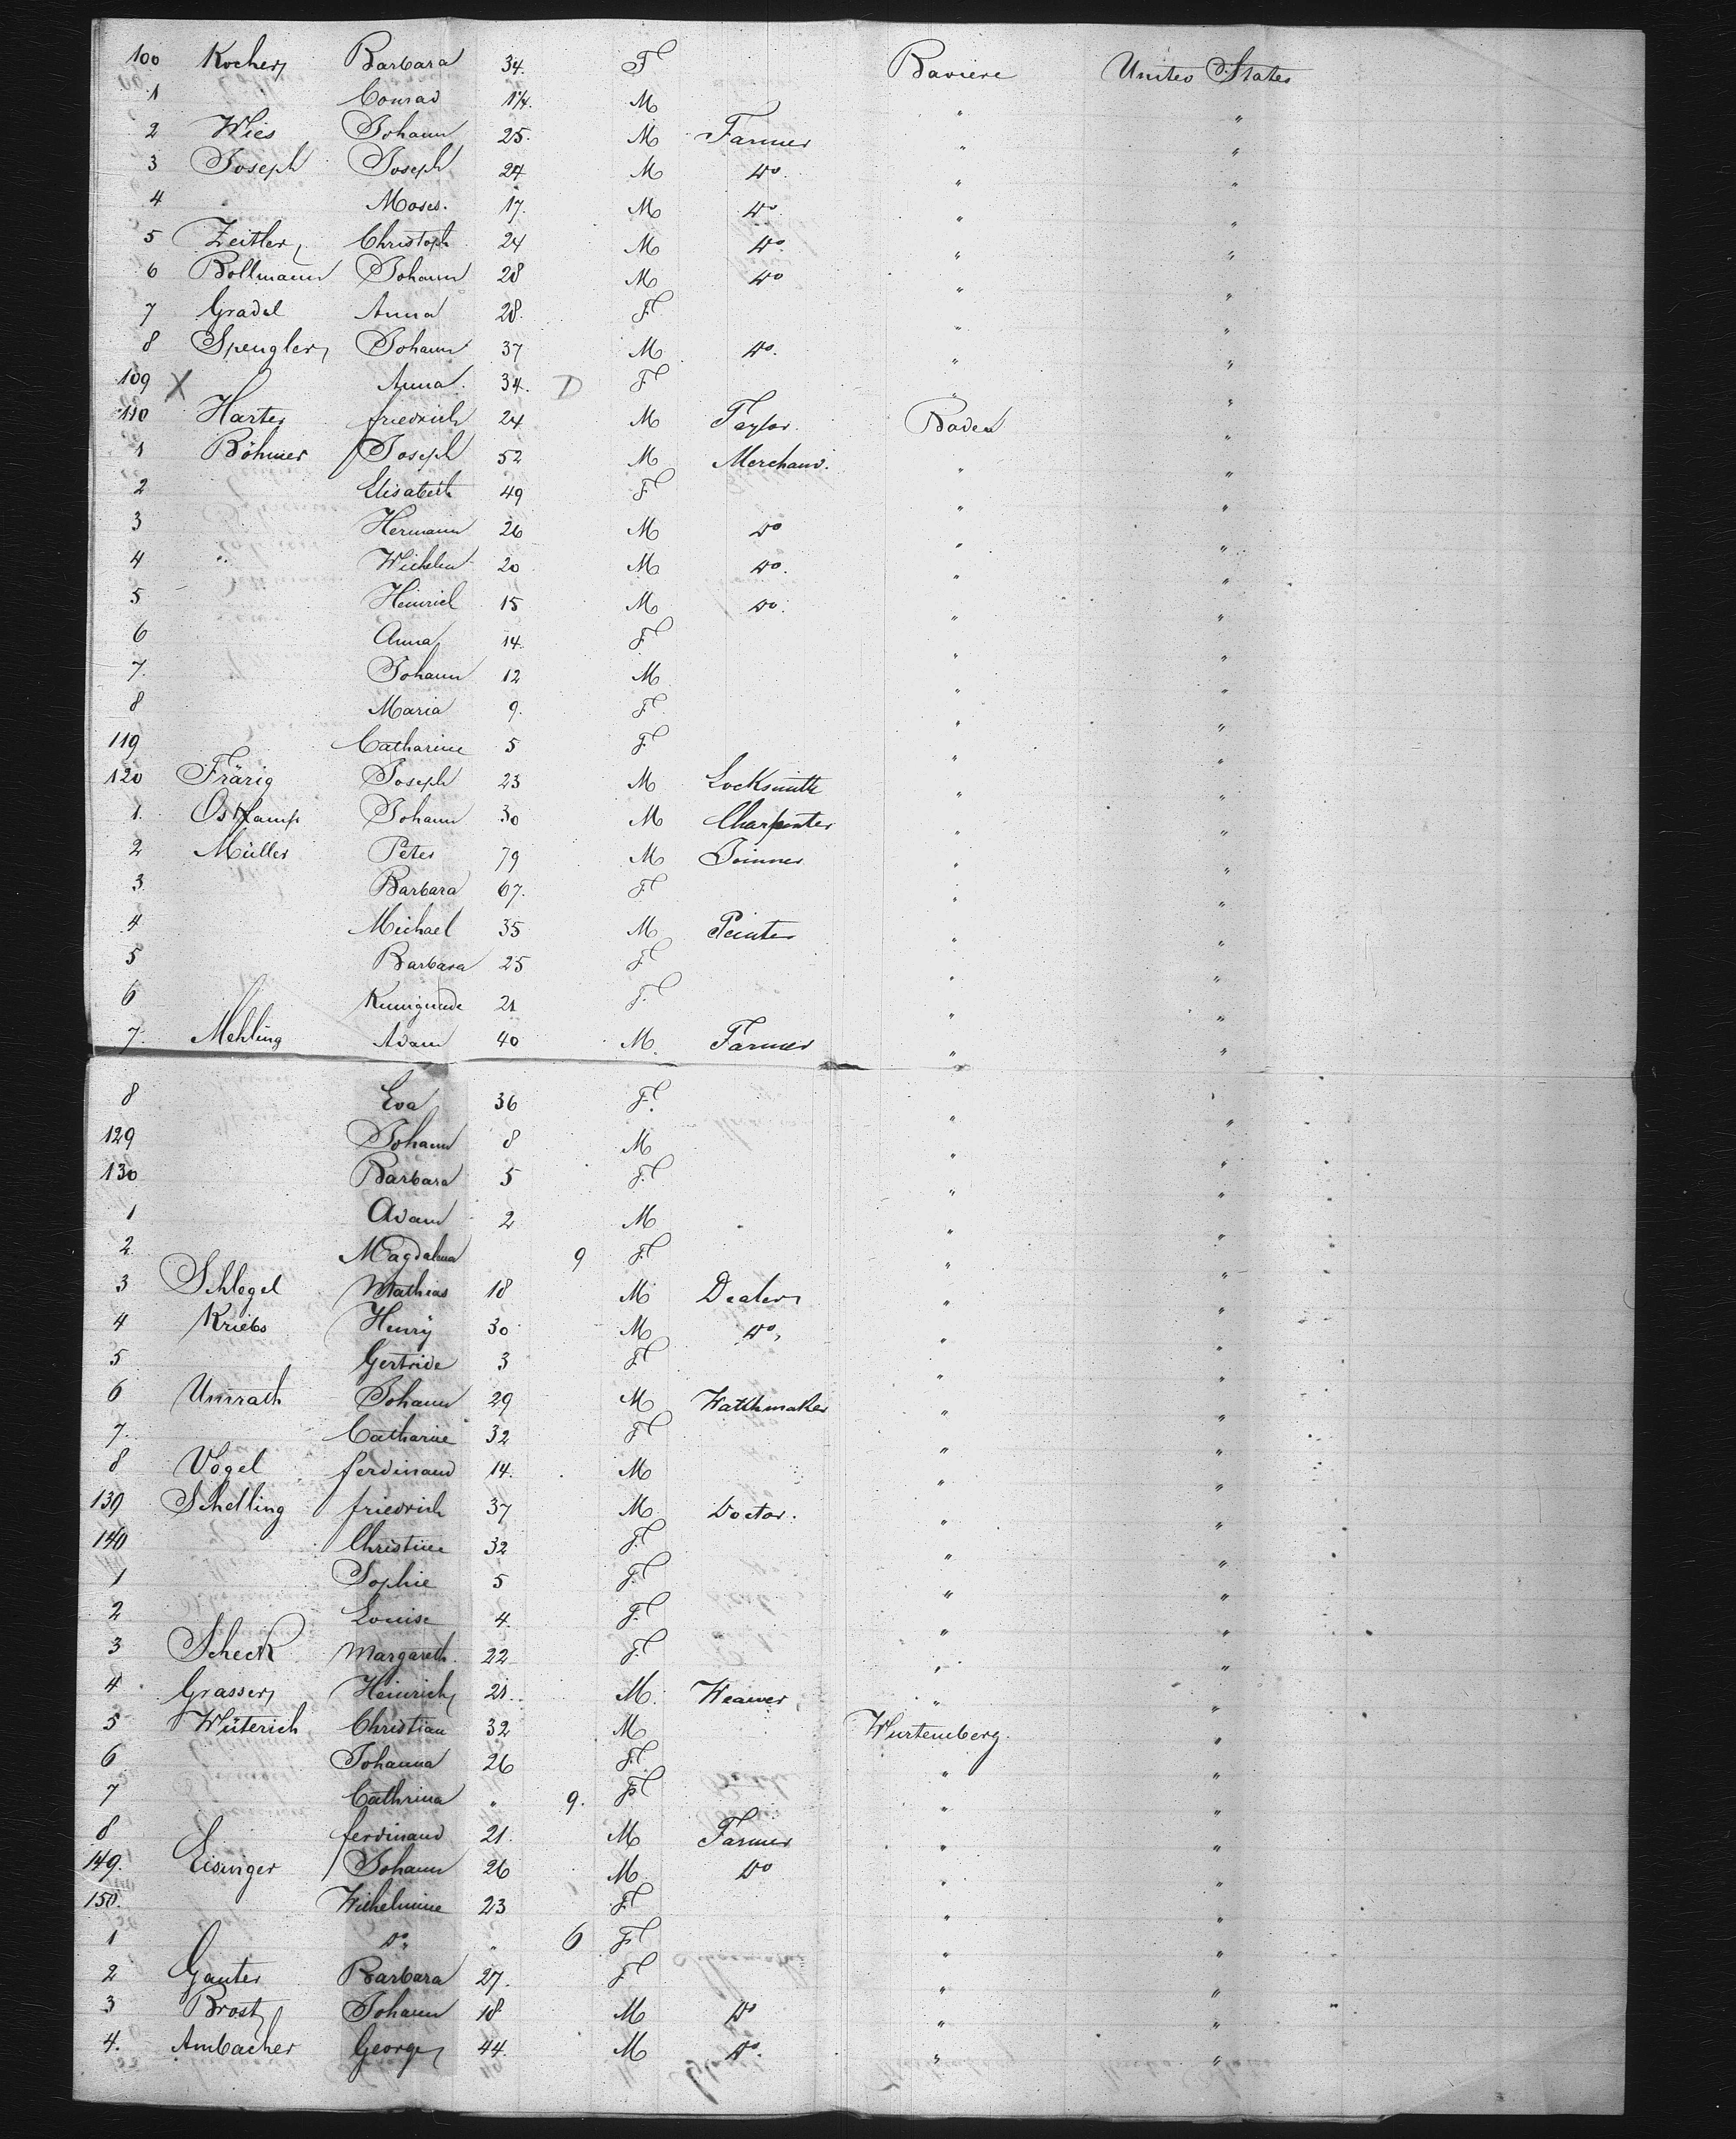 100 Kocher Barbara 34. F Baviere United States
1 Conrad 1¼. M " "
2 Wies Johann 25. M Farmer " "
3 Joseph Joseph 24 M do. " "
4 " Moses. 17. M do. " "
5 Zeitler, Christoph 24 M do. " "
6 Bollmann Johann 28 M do " "
7 Gradel Anna 28. F " "
8 Spengler Johann 37 M do. " "
109 X Anna. 34. D F " "
110 Harter friedrich 24 M Taylor. Baden "
1 Böhmer Joseph 52 M Merchand. " "
2 Elisabeth 49 F " "
3 Hermann 26 M do " "
4 " Wilhelm 20 M do. " "
5 Heinrich 15 M do. " "
6 Anna 14. F " "
7. Johann 12 M " "
8 Maria 9. F " "
119 Catharine 5 F " "
120 Frärig Joseph 23 M Locksmith " "
1. Ostkamp Johann 30 M Charpenter " "
2 Müller Peter 79 M Joinner " "
3 Barbara 67. F " "
4 Michael 35 M Peinter " "
5 Barbara 25 F " "
6 Kunigunde 21 F. " "
7. Mehling Adam 40 M. Farmer " "
8 Eva 36 F. " "
129 Johann 8 M " "
130 Barbara 5 F. " "
1 Adam 2 M " "
2 Magdalena 9 F " "
3 Schlegel Mathias 18 M Dealer " "
4 Kriebs Henry 30 M do, " "
5 Gertride 3 F " "
6 Unrath Johann 29 M Watchmaker " "
7. Catharine 32 F " "
8 Vogel ferdinand 14. M " "
139 Schelling friedrich 37 M Doctor. " "
140 Christine 32 F. " "
1 Sophie 5 F. " "
2 Louise 4. F. " "
3 Scheck Margareth. 22 F. " "
4 Grasser Heinrich 21. M. Weawer " "
5 Wüterich Christian 32 M Wurtemberg. "
6 Johanna 26 F. " "
7 Cathrina " 9. F " "
8 ferdinand 21. M Farmer " "
149. Eisinger Johann 26 M. do " "
150. Wilhelmine 23 F " "
1 do " 6 F " "
2 Ganter Barbara 27. F " "
3 Brost Johann 18 M do " "
4. Ambacher George 44. M do. " "